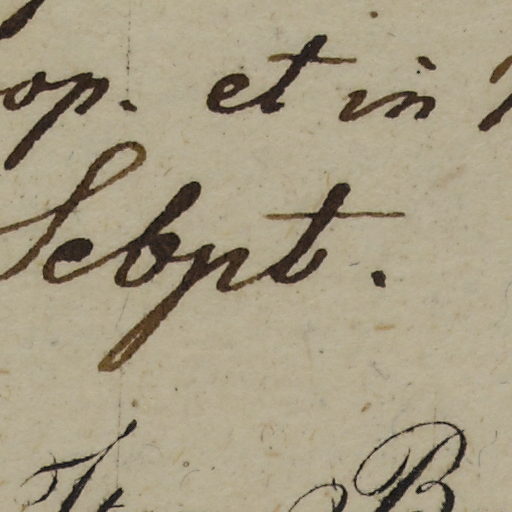 op. et in
Sebpt.